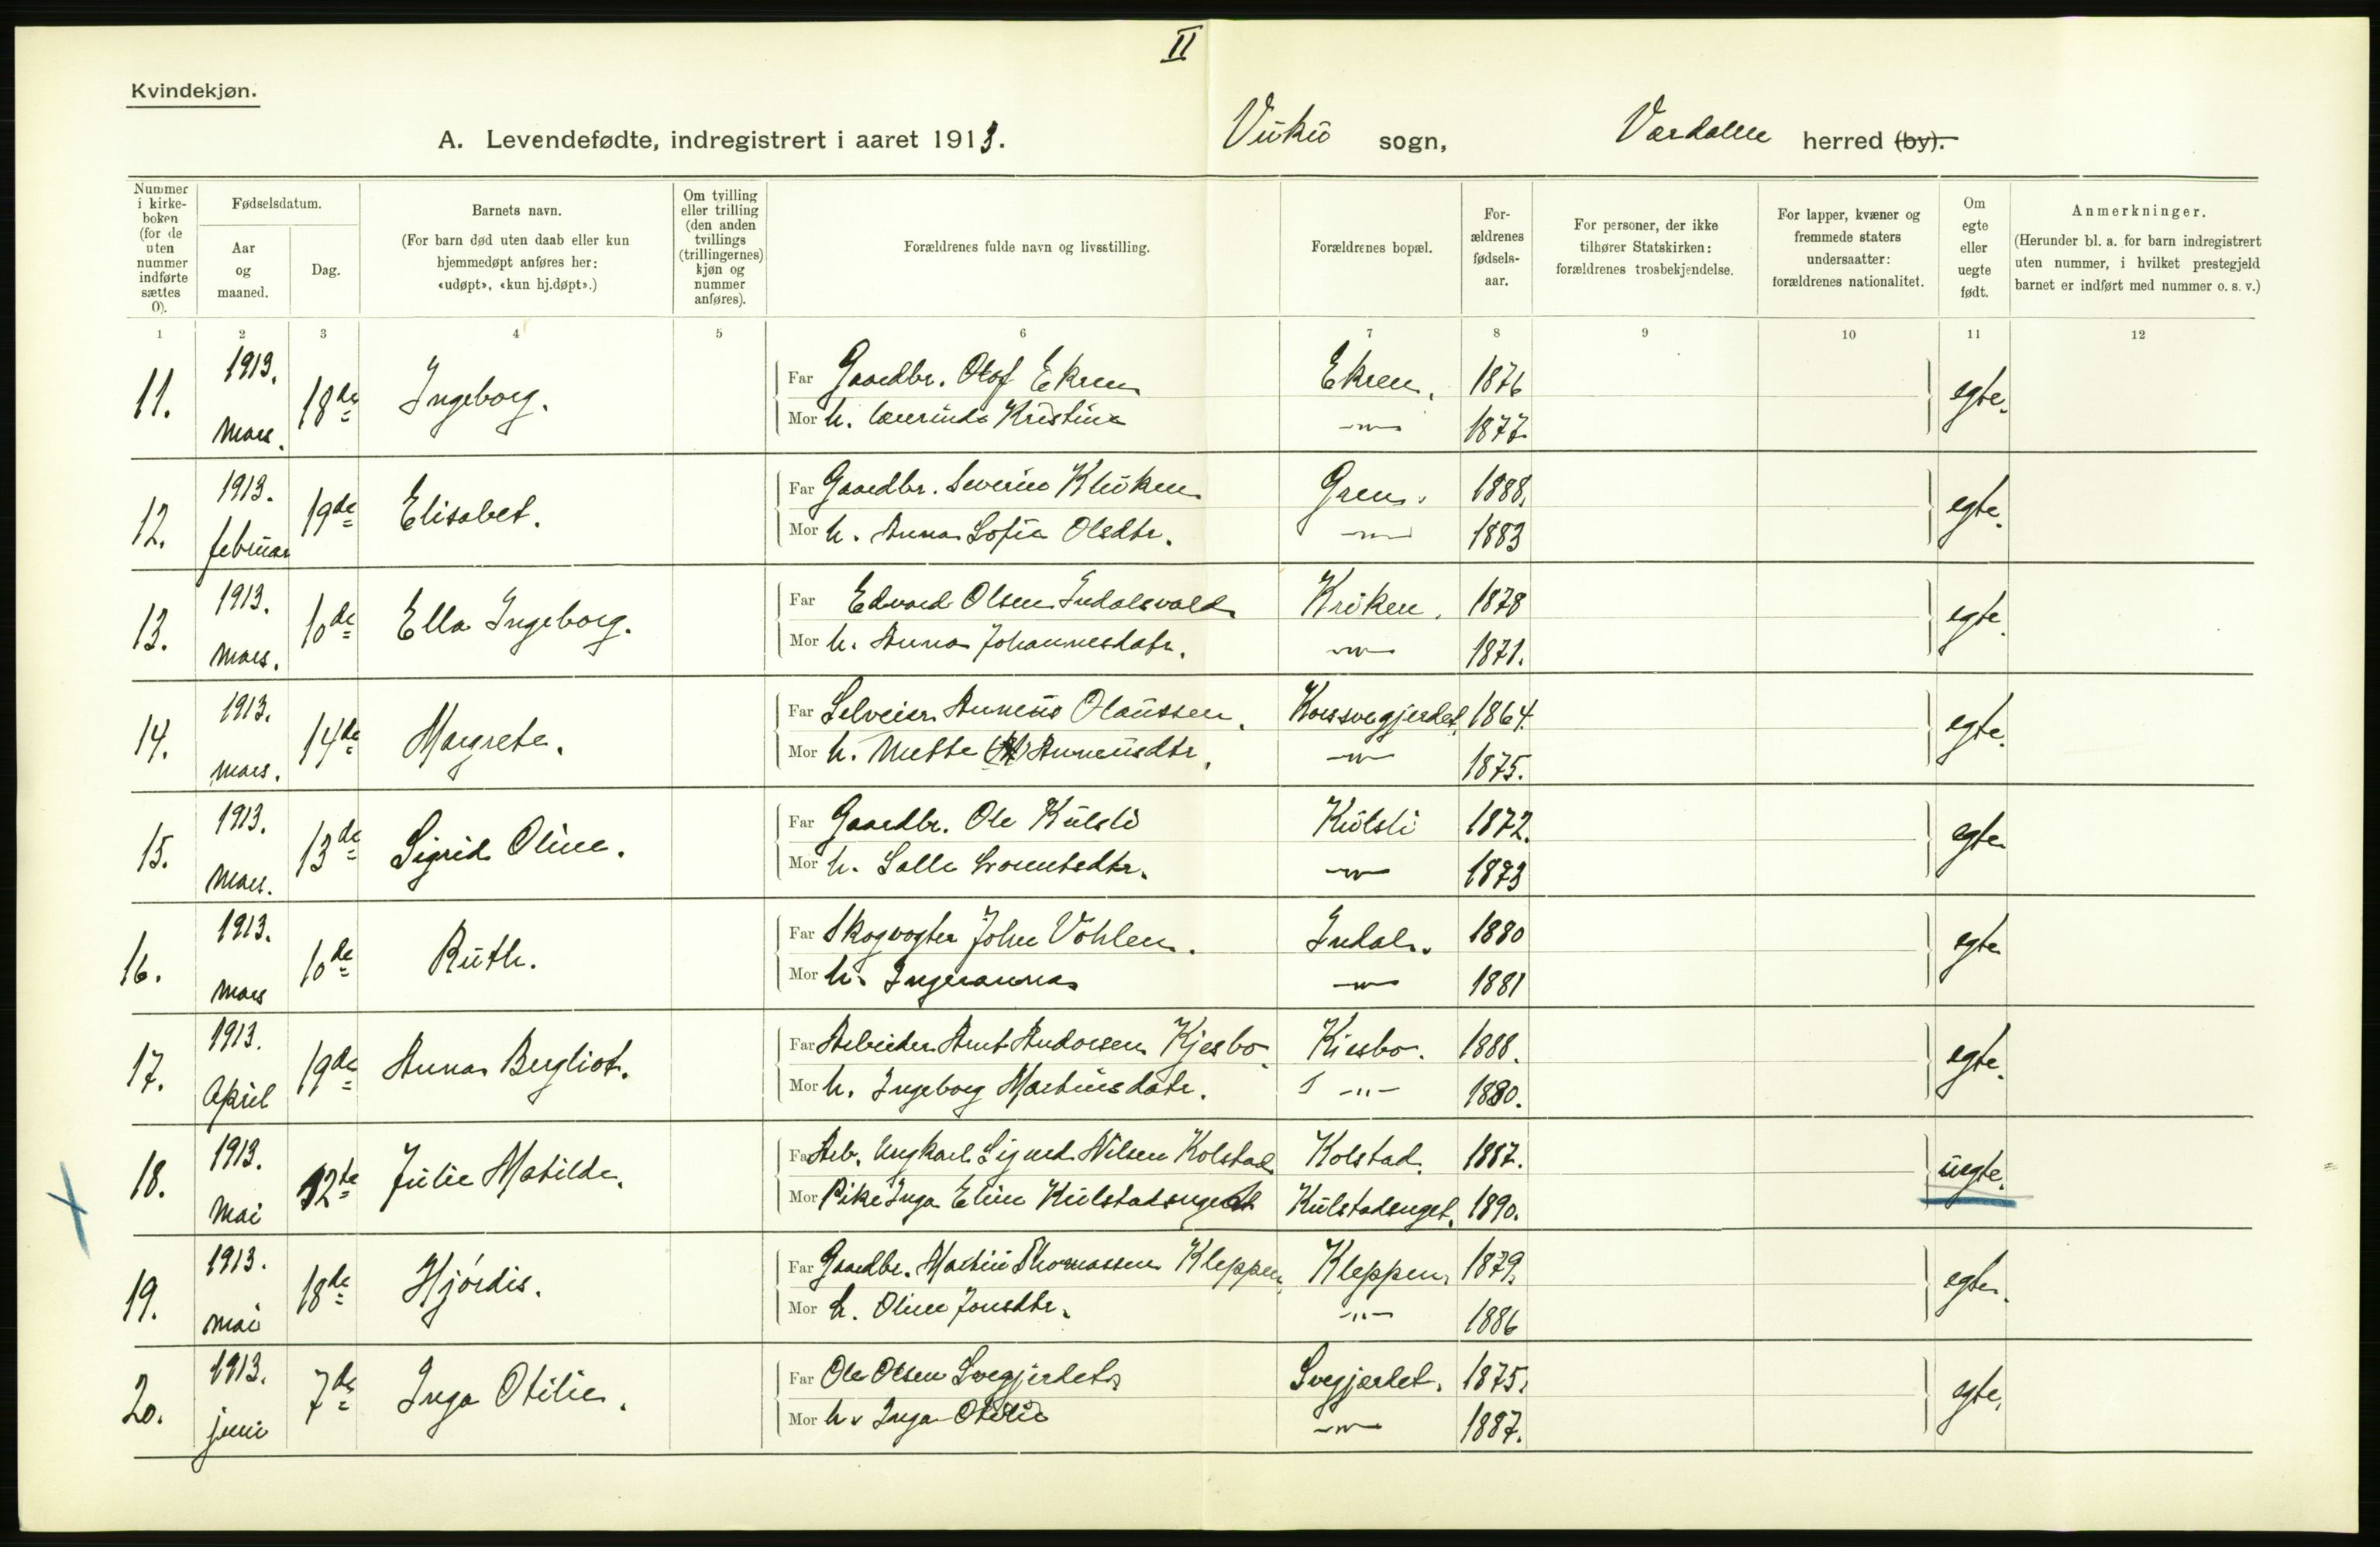 II
Kvindekjøn.
A. Levendefødte, indregistrert i aaret 1913. Vuku sogn, Værdalen herred (by).
Nummer i kirkeboken (for de uten nummer indførte sættes 0).
Fødselsdatum.
Aar og maaned.
Dag.
Barnets navn.
(For barn død uten daab eller kun hjemmedøpt anføres her: «udøpt», «kun hj.døpt».)
Om tvilling eller trilling (den anden tvillings (trillingernes) kjøn og nummer anføres).
Forældrenes fulde navn og livsstilling.
Forældrenes bopæl.
Forældrenes fødselsaar.
For personer, der ikke tilhører Statskirken: forældrenes trosbekjendelse.
For lapper, kvæner og fremmede staters undersaatter: forældrenes nationalitet.
Om egte eller uegte født.
Anmerkninger.
(Herunder bl. a. for barn indregistrert uten nummer, i hvilket prestegjeld barnet er indført med nummer o. s. v.)
1 2 3 4 5 6 7 8 9 10 11 12
11. 1913. Mars. 18de Ingeborg. Far Gaardbr. Olof Ekren Ekren. 1876 egte.
Mor h. Kristine -"- 1877
12. 1913. februar 19de Elisabet. Far Gaardbr. Severin Kluken Green. 1888. egte.
Mor h. Anna Sofie Olsdtr. -"- 1883
13. 1913. Mars. 10de Ella Ingeborg. Far Edvard Olsen Indalsvald Kroken. 1878 egte.
Mor h. Anna Johannesdatr. -"- 1871.
14. 1913. Mars. 14de Margrete. Far Selveier Anneus Olaussen. Korsvegjerdet. 1864. egte.
Mor h. Mette Anneusdtr. -"- 1875.
15. 1913. Mars. 13de Sigrid Oline. Far Gaardbr. Ole Kulsli Kulsli 1872. egte
Mor h. -"- 1873
16. 1913. Mars 10de Ruth. Far Skogvogter John Vohlen. Indal. 1880 egte
Mor h. Ingeranna -"- 1881
17. 1913. April 19de Anna Bergliot. Far Arbeider Arnt Andorsen Kjesbo. Kiesbo. 1888. egte.
Mor h. Ingeborg Martinsdatr. -"- 1880.
18. 1913. Mai 12te Julie Matilde. Far Arb. Ungkarl Sigurd Nilsen Kolstad Kolstad. 1887. uegte.
Mor Pike Inga Eline Kulstadsenget Kulstadsenget. 1890.
19. 1913. Mai 18de Hjørdis. Far Gaardbr. Martin Thomassen Kleppen. Kleppen. 1879. egte.
Mor h. Oline Jonsdtr. -"- 1886
20. 1913. juni 7de Inga Otilie. Far Ole Olsen Svegjerdet Svegjærdet. 1875. egte.
Mor h. Inga Otilie -"- 1887.